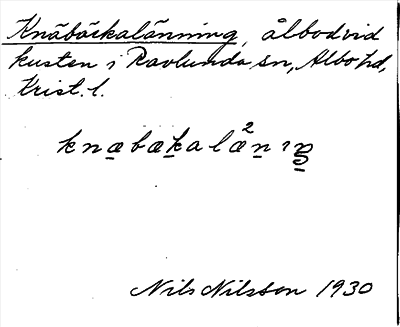 Knäbäckalänning, ålbod vid
kusten i Ravlunda sn, Albo hd,
Krist. l.
knäbäkalä²nıŋ
Nils Nilsson 1930